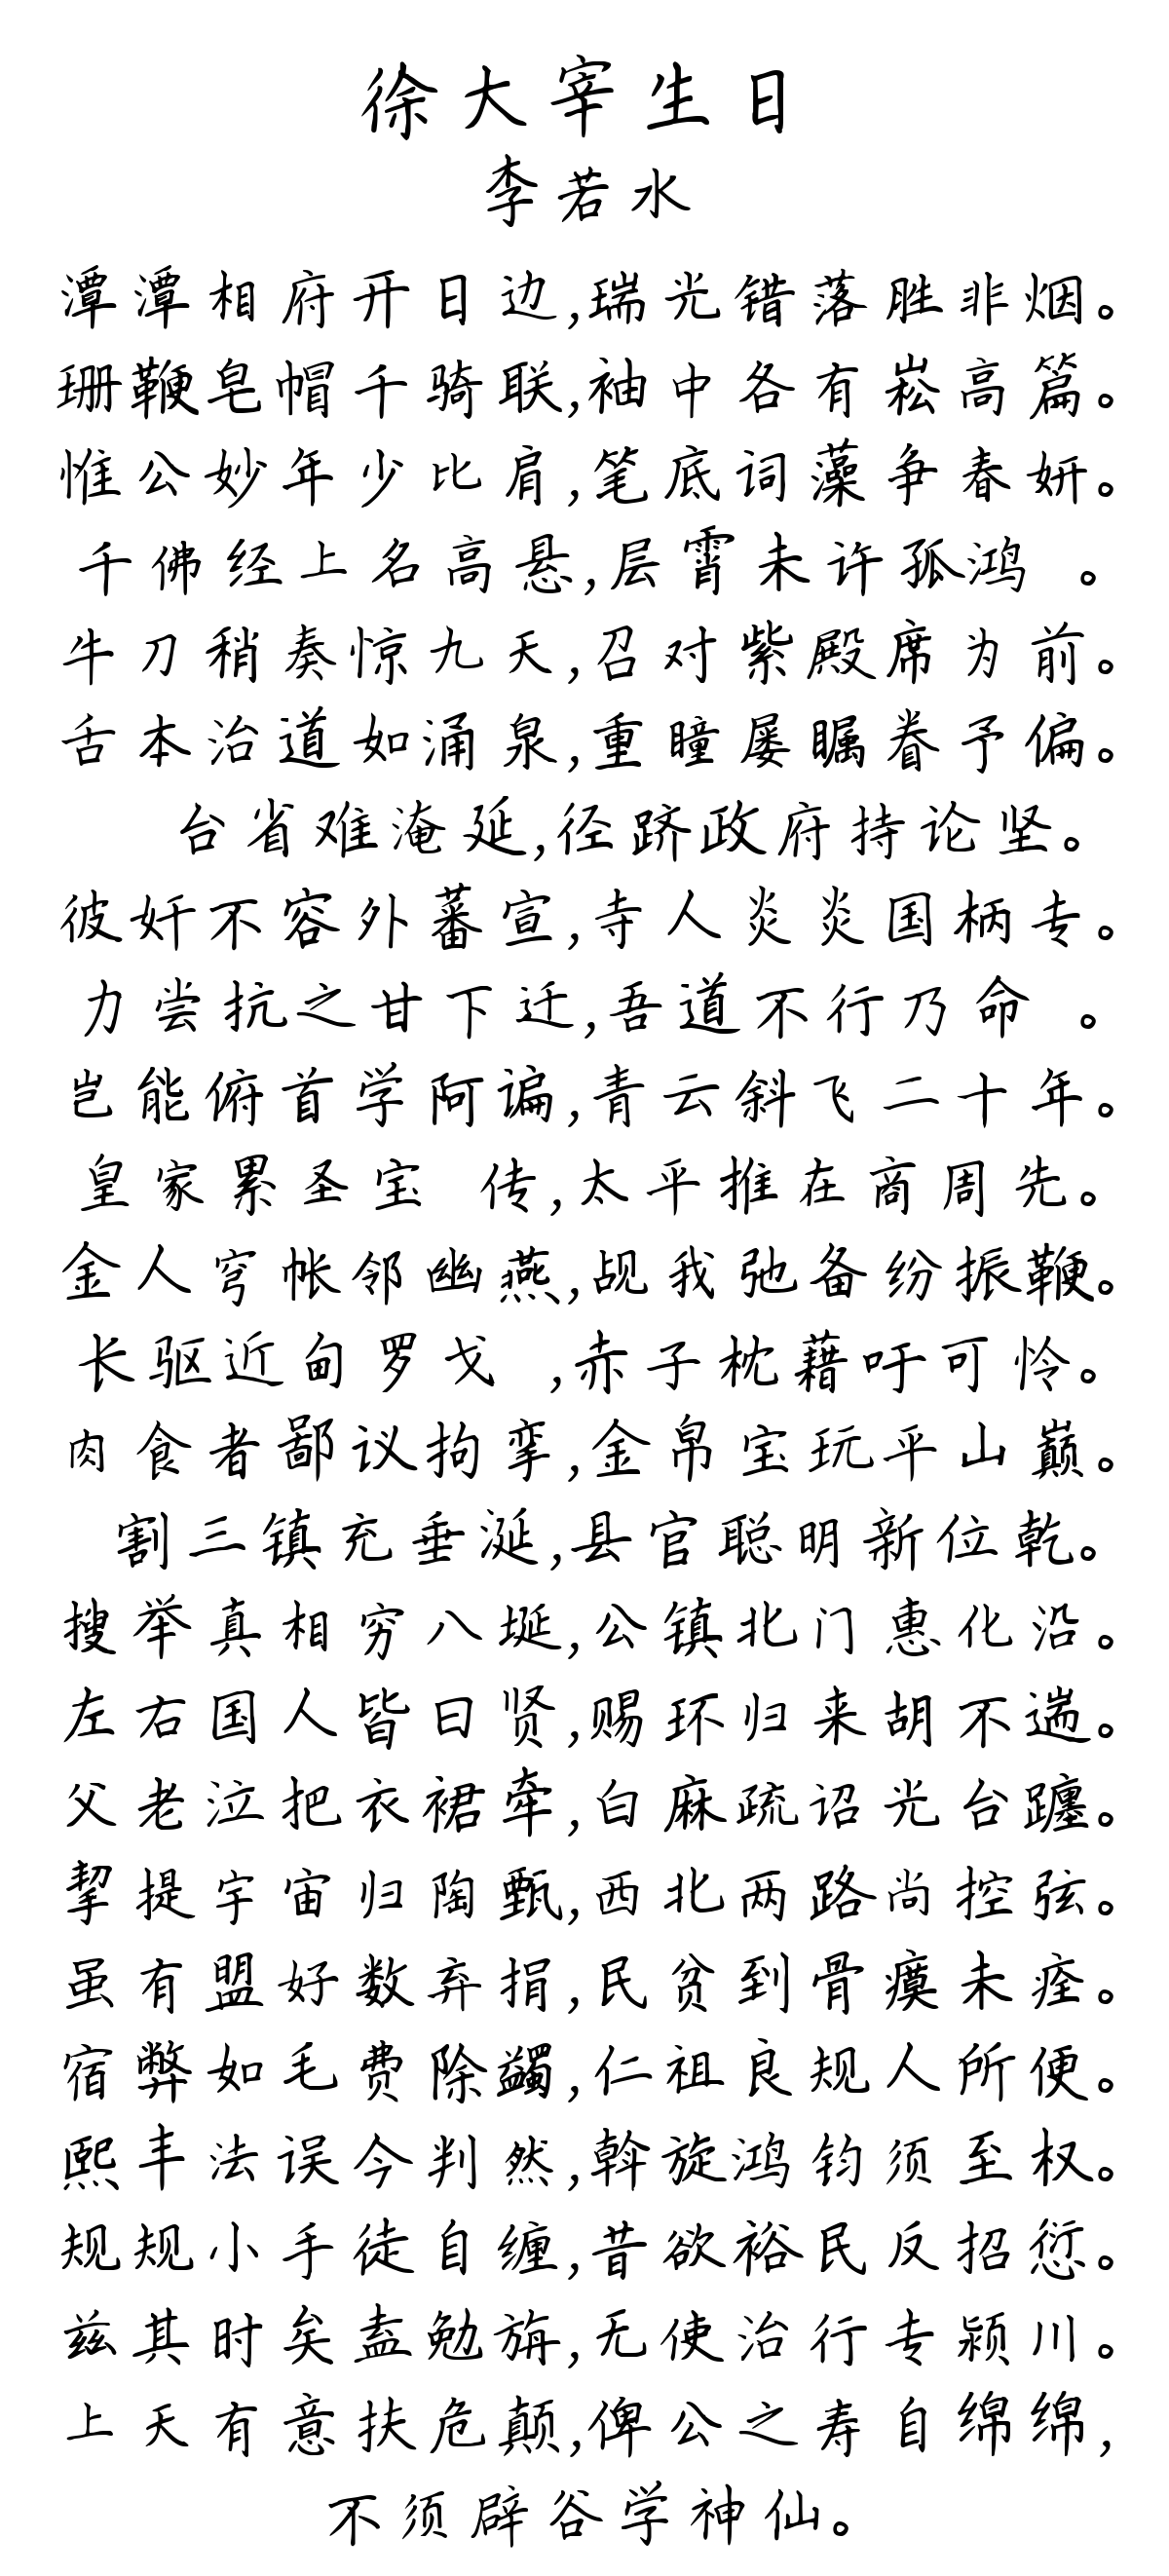 徐大宰生日
李若水
潭潭相府开日边,瑞光错落胜非烟。
珊鞭皂帽千骑联,袖中各有崧高篇。
惟公妙年少比肩,笔底词藻争春妍。
千佛经上名高悬,层霄未许孤鸿 。
牛刀稍奏惊九天,召对紫殿席为前。
舌本治道如涌泉,重瞳屡瞩眷予偏。
台省难淹延,径跻政府持论坚。
彼奸不容外蕃宣,寺人炎炎国柄专。
力尝抗之甘下迁,吾道不行乃命 。
岂能俯首学阿谝,青云斜飞二十年。
皇家累圣宝 传,太平推在商周先。
金人穹帐邻幽燕,觇我弛备纷振鞭。
长驱近甸罗戈 ,赤子枕藉吁可怜。
肉食者鄙议拘挛,金帛宝玩平山巅。
割三镇充垂涎,县官聪明新位乾。
搜举真相穷八埏,公镇北门惠化沿。
左右国人皆曰贤,赐环归来胡不遄。
父老泣把衣裙牵,白麻疏诏光台躔。
挈提宇宙归陶甄,西北两路尚控弦。
虽有盟好数弃捐,民贫到骨瘼未痊。
宿弊如毛费除蠲,仁祖良规人所便。
熙丰法误今判然,斡旋鸿钧须至权。
规规小手徒自缠,昔欲裕民反招愆。
兹其时矣盍勉旃,无使治行专颍川。
上天有意扶危颠,俾公之寿自绵绵,
不须辟谷学神仙。